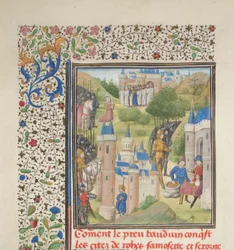 Coment le preu bauduin conqst
les citez de rohes samosette et seroute